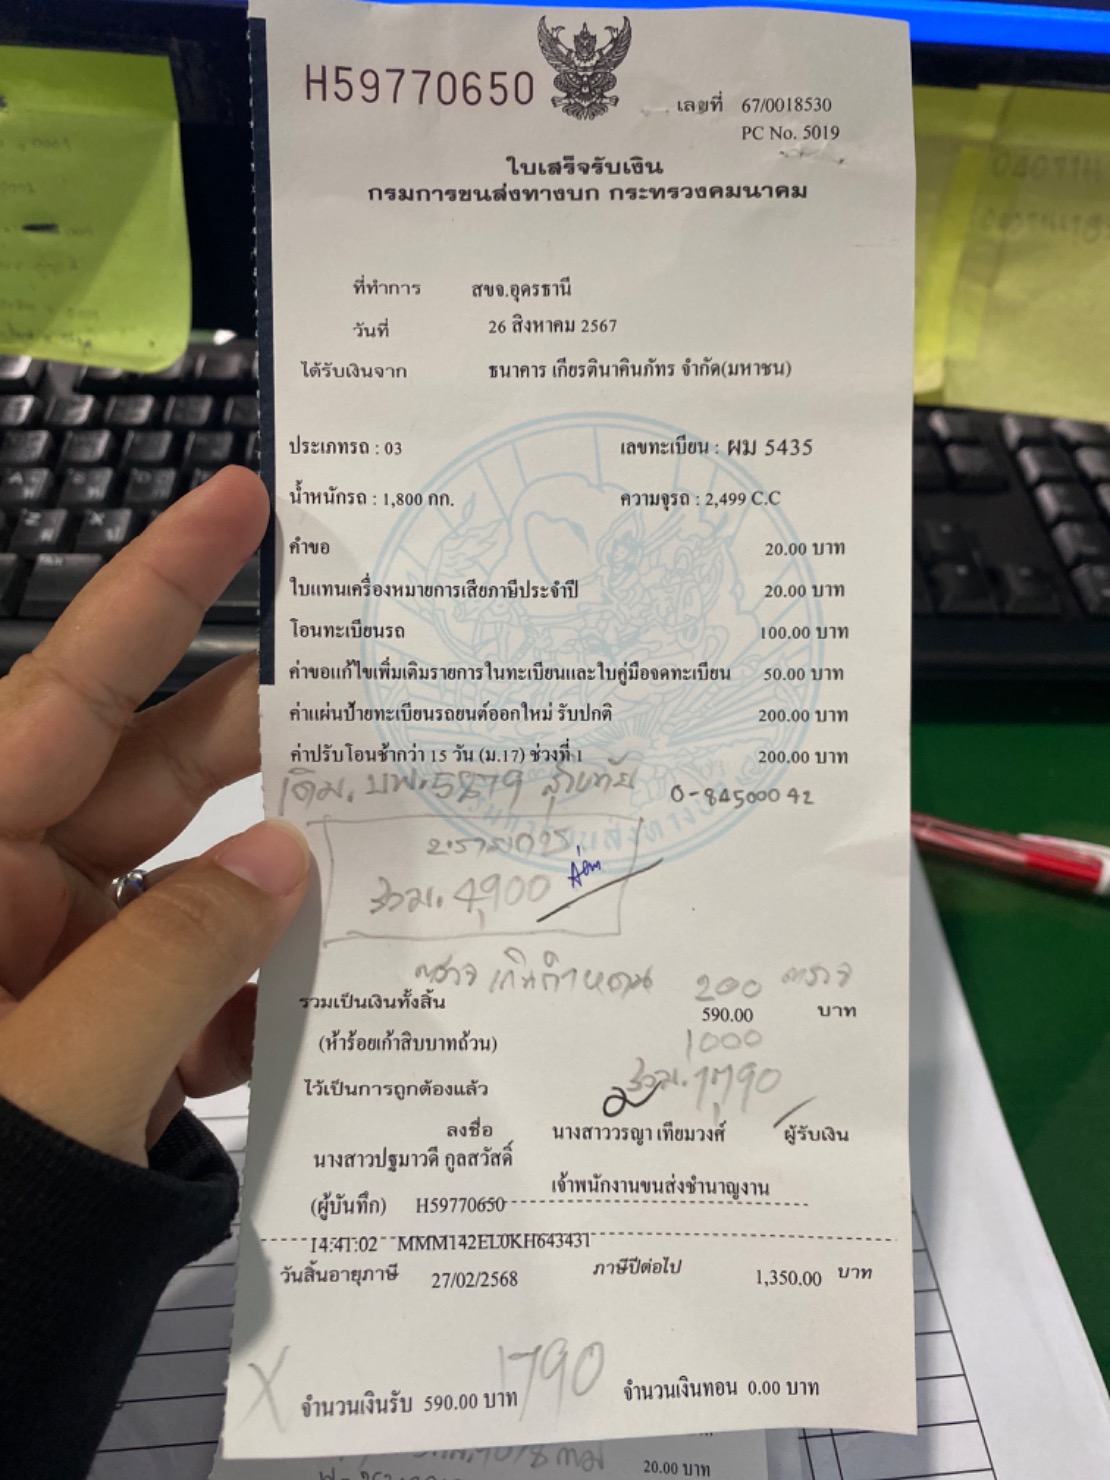 H59770650
เลขที่ 67/0018530
PC No. 5019
ใบเสร็จรับเงิน
กรมการขนส่งทางบก กระทรวงคมนาคม
ที่ทำการ สขจ.อุดรธานี
วันที่ 26 สิงหาคม 2567
ได้รับเงินจาก ธนาคาร เกียรตินาคินภัทร จำกัด(มหาชน)
ประเภทรถ : 03 เลขทะเบียน : ผม 5435
น้ำหนักรถ : 1,800 กก. ความจุรถ : 2,499 C.C
คำขอ 20.00 บาท
ใบแทนเครื่องหมายการเสียภาษีประจำปี 20.00 บาท
โอนทะเบียนรถ 100.00 บาท
ค่าขอแก้ไขเพิ่มเติมรายการในทะเบียนและใบคู่มือจดทะเบียน 50.00 บาท
ค่าแผ่นป้ายทะเบียนรถยนต์ออกใหม่ รับปกติ 200.00 บาท
ค่าปรับโอนช้ากว่า 15 วัน (ม.17) ช่วงที่ 1 200.00 บาท
เดิม. บพ.5879 สุโขทัย 0-84500042
รวม. 4,900
ตรวจ เกินกำหนด 200 ตรวจ
รวมเป็นเงินทั้งสิ้น 590.00 บาท
(ห้าร้อยเก้าสิบบาทถ้วน) 1000
ไว้เป็นการถูกต้องแล้ว รวม. 1,790
ลงชื่อ นางสาววรญา เทียมวงศ์ ผู้รับเงิน
นางสาวปฐมาวดี กูลสวัสดิ์
เจ้าพนักงานขนส่งชำนาญงาน
(ผู้บันทึก) H59770650
14:41:02 MMM142EL0KH643431
วันสิ้นอายุภาษี 27/02/2568 ภาษีปีต่อไป 1,350.00 บาท
X 1790
จำนวนเงินรับ 590.00 บาท จำนวนเงินทอน 0.00 บาท
20.00 บาท